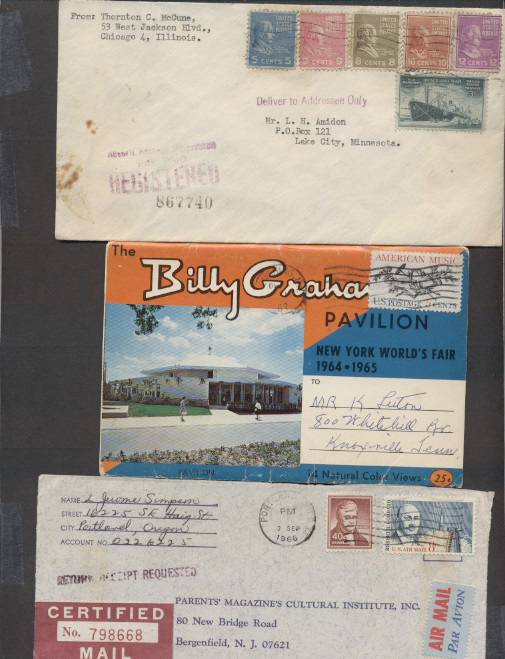 From: Thornton C. McCune,
53 West Jackson Blvd.,
Chicago 4, Illinois.
5 CENTS 5
8 CENTS 8
10 CENTS 10
12 CENTS 12
Deliver to Addressee Only
Mr. L. H. Amidon
P.O.Box 121
Lake City, Minnesota.
REGISTERED
867740
The
Billy Graham
PAVILION
AMERICAN MUSIC
U.S. POSTAGE 5 CENTS
NEW YORK WORLD'S FAIR
1964 • 1965
TO
MR K Luton
800 Whitehill Rd
Knoxville Tenn.
PAVILION
14 Natural Color Views
25¢
NAME Jerome Simpson
STREET 10225 SE Haig St
CITY Portland, Oregon
ACCOUNT NO. 0226225
PORTLAND
PM
2 SEP
1966
40¢
U.S. AIR MAIL 8¢
RETURN RECEIPT REQUESTED
CERTIFIED
No. 798668
MAIL
PARENTS' MAGAZINE'S CULTURAL INSTITUTE, INC.
80 New Bridge Road
Bergenfield, N. J. 07621
AIR MAIL
PAR AVION